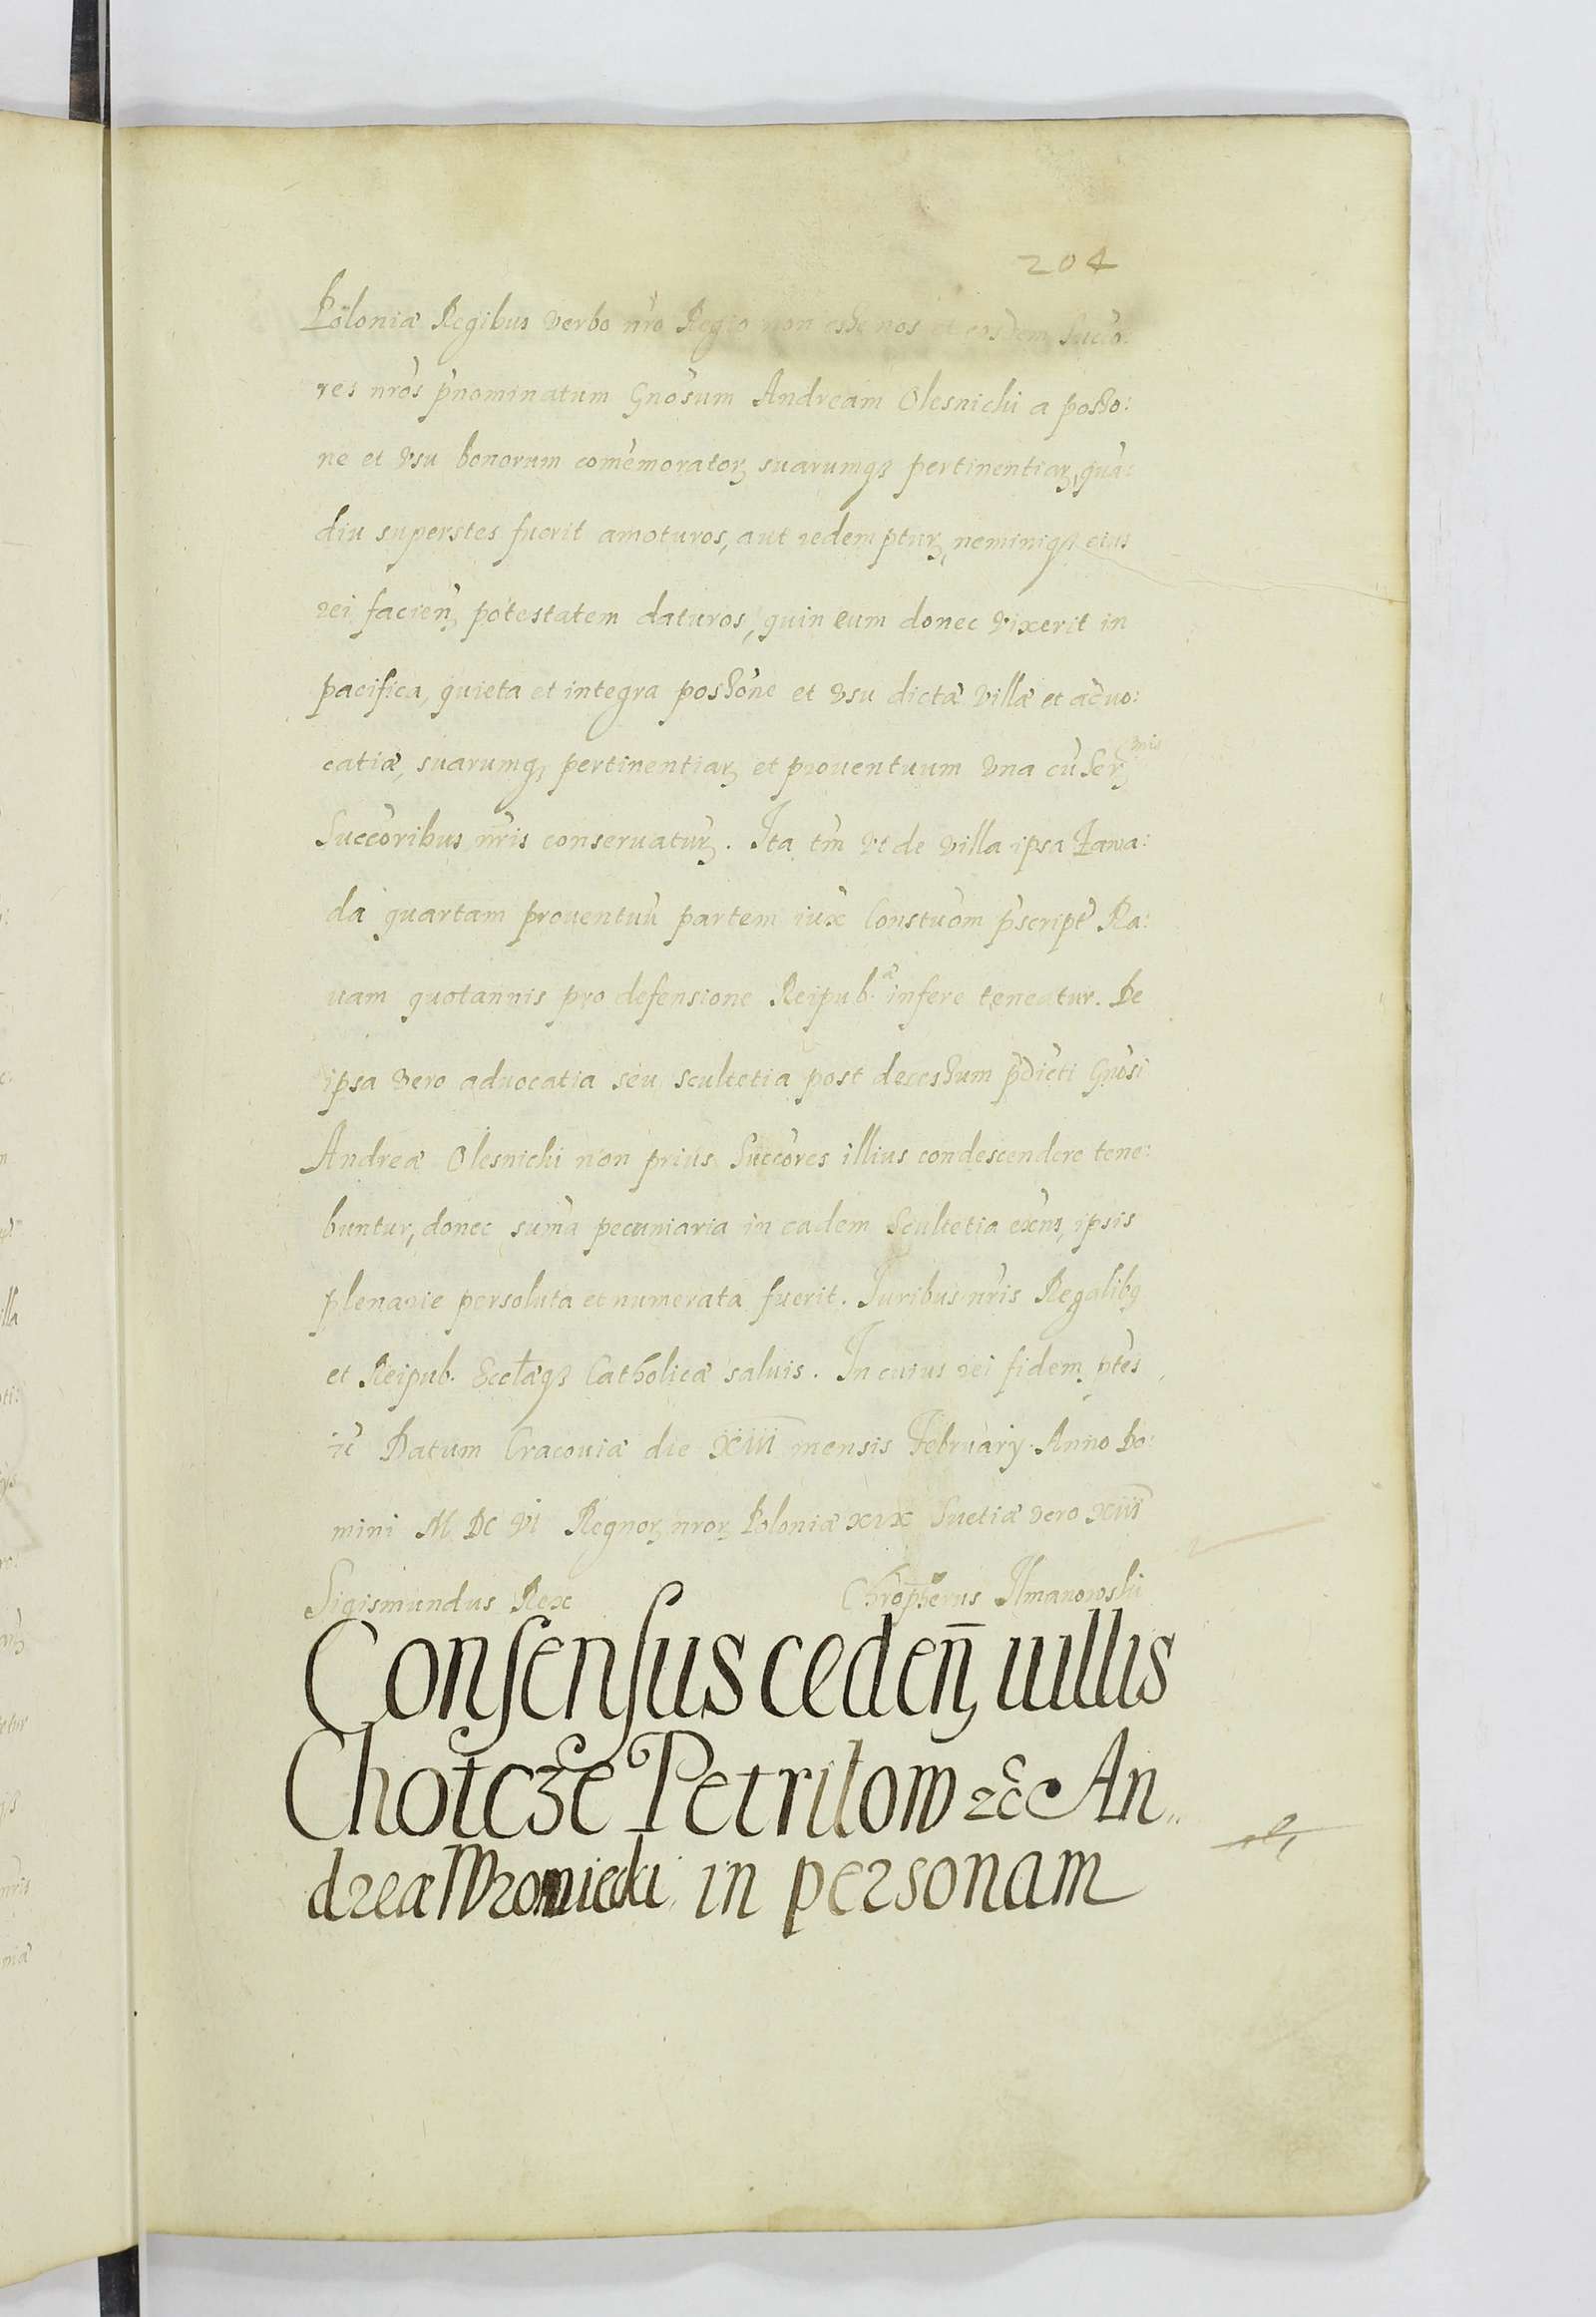 204
Poloniæ Regibus verbo nr̃o Regio non esse nos et eosdem Succo:
res nr̃os p̃nominatum Gnõsum Andream Olesnicki a posso:
ne et vsu bonorum comẽmoratorꝫ suarumqꝫ pertinentiarꝫ, quã:
diu superstes fuerit amoturos, aut redempturꝫ, neminiqꝫ eius
rei facienꝫ potestatem daturos, quin eum donec vixerit in
pacifica, quieta et integra possõne et vsu dictæ villæ et advo:
catiæ, suarumqꝫ pertinentiarꝫ et prouentuum vna cũ Serꝫmis
Succoribus nr̃is conseruaturꝫ. Ita tm̃ vt de villa ipsa Zawa:
da quartam prouentuũ partem iux̃ Constũom p̃script̃ Ra:
uam quotannis pro defensione Reipub.æ infere teneatur. De
ipsa vero aduocatia seu scultetia post decessum p̃dicti Gnõsi
Andreæ Olesnicki non prius Succores illius condescendere tene:
buntur, donec sum̃a pecuniaria in eadem Scultetia exñs, ipsis
plenarie persoluta et numerata fuerit. Iuribus nr̃is Regalibꝫ
et Reipub. Eccłæqꝫ Catholicæ saluis. In cuius rei fidem p̃tes
zc̃ Datum Cracouiæ die XIII mensis February Anno Do:
mini M DC VI Regnorꝫ nrorꝫ Poloniæ XIX Suetiæ vero XIII
Sigismundus Rex Chrop̃herus Ilmanowski
Consensus cedenꝫ uillis
Chotcze Petrilow zc An„
dreæ Wromiecki in personam